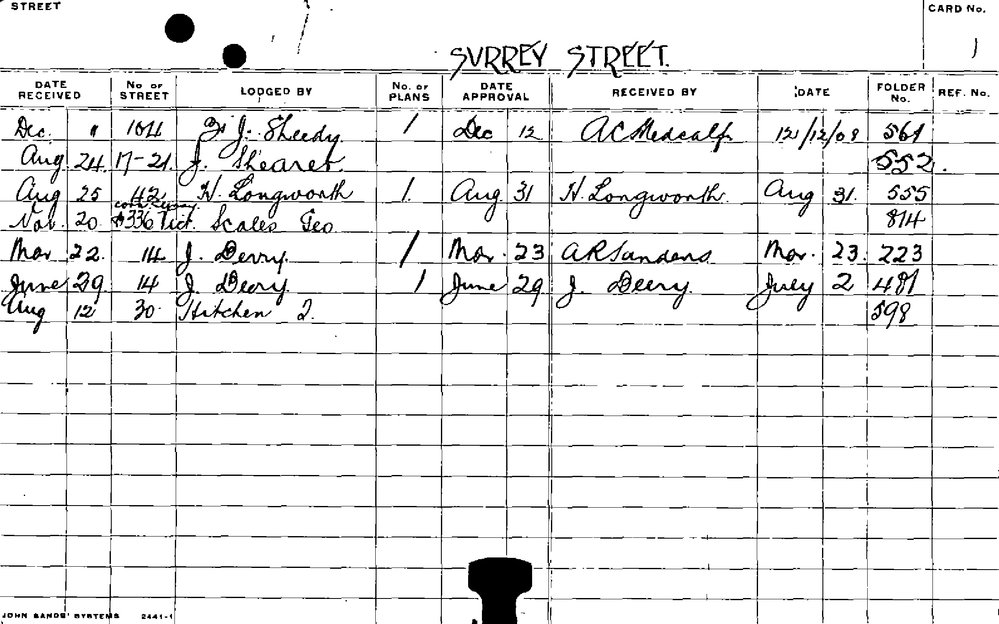 STREET
CARD No.
1
SURREY STREET.
DATE RECEIVED No OF STREET LODGED BY No. OF PLANS DATE APPROVAL RECEIVED BY DATE FOLDER No. REF. No.
Dec. 11 104 J. Sheedy 1 Dec 12 A C Medcalf 12/12/08 561
Aug 24 17-21 J. Shearer 552.
Aug 25 42 H. Longworth 1. Aug 31 H. Longworth. Aug 31. 555
corn Surrey
Nov. 20. & 336 Vict. Scales Geo 814
Mar 22. 14 J. Derry. 1 Mar. 23 A R Sanders Mar. 23. 223
June 29 14 J. Deery 1 June 29 J. Deery. July 2 481
Aug 12 30 Hitchen 598
JOHN SANDS' SYSTEMS 2441-1